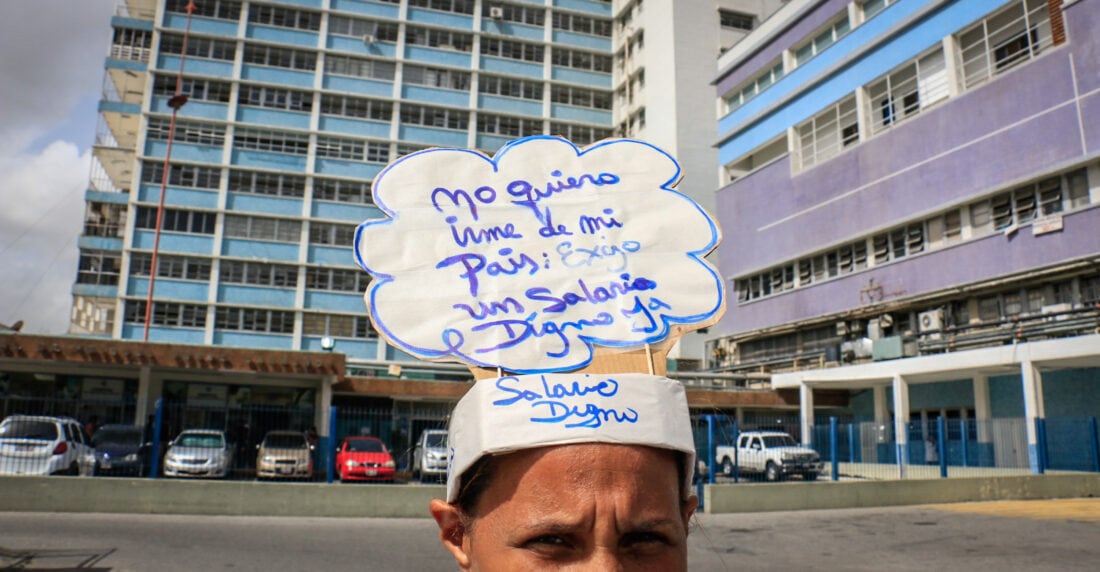 no quiero
irme de mi
País: Exigo
un Salario
Digno Ya
Salario
Digno